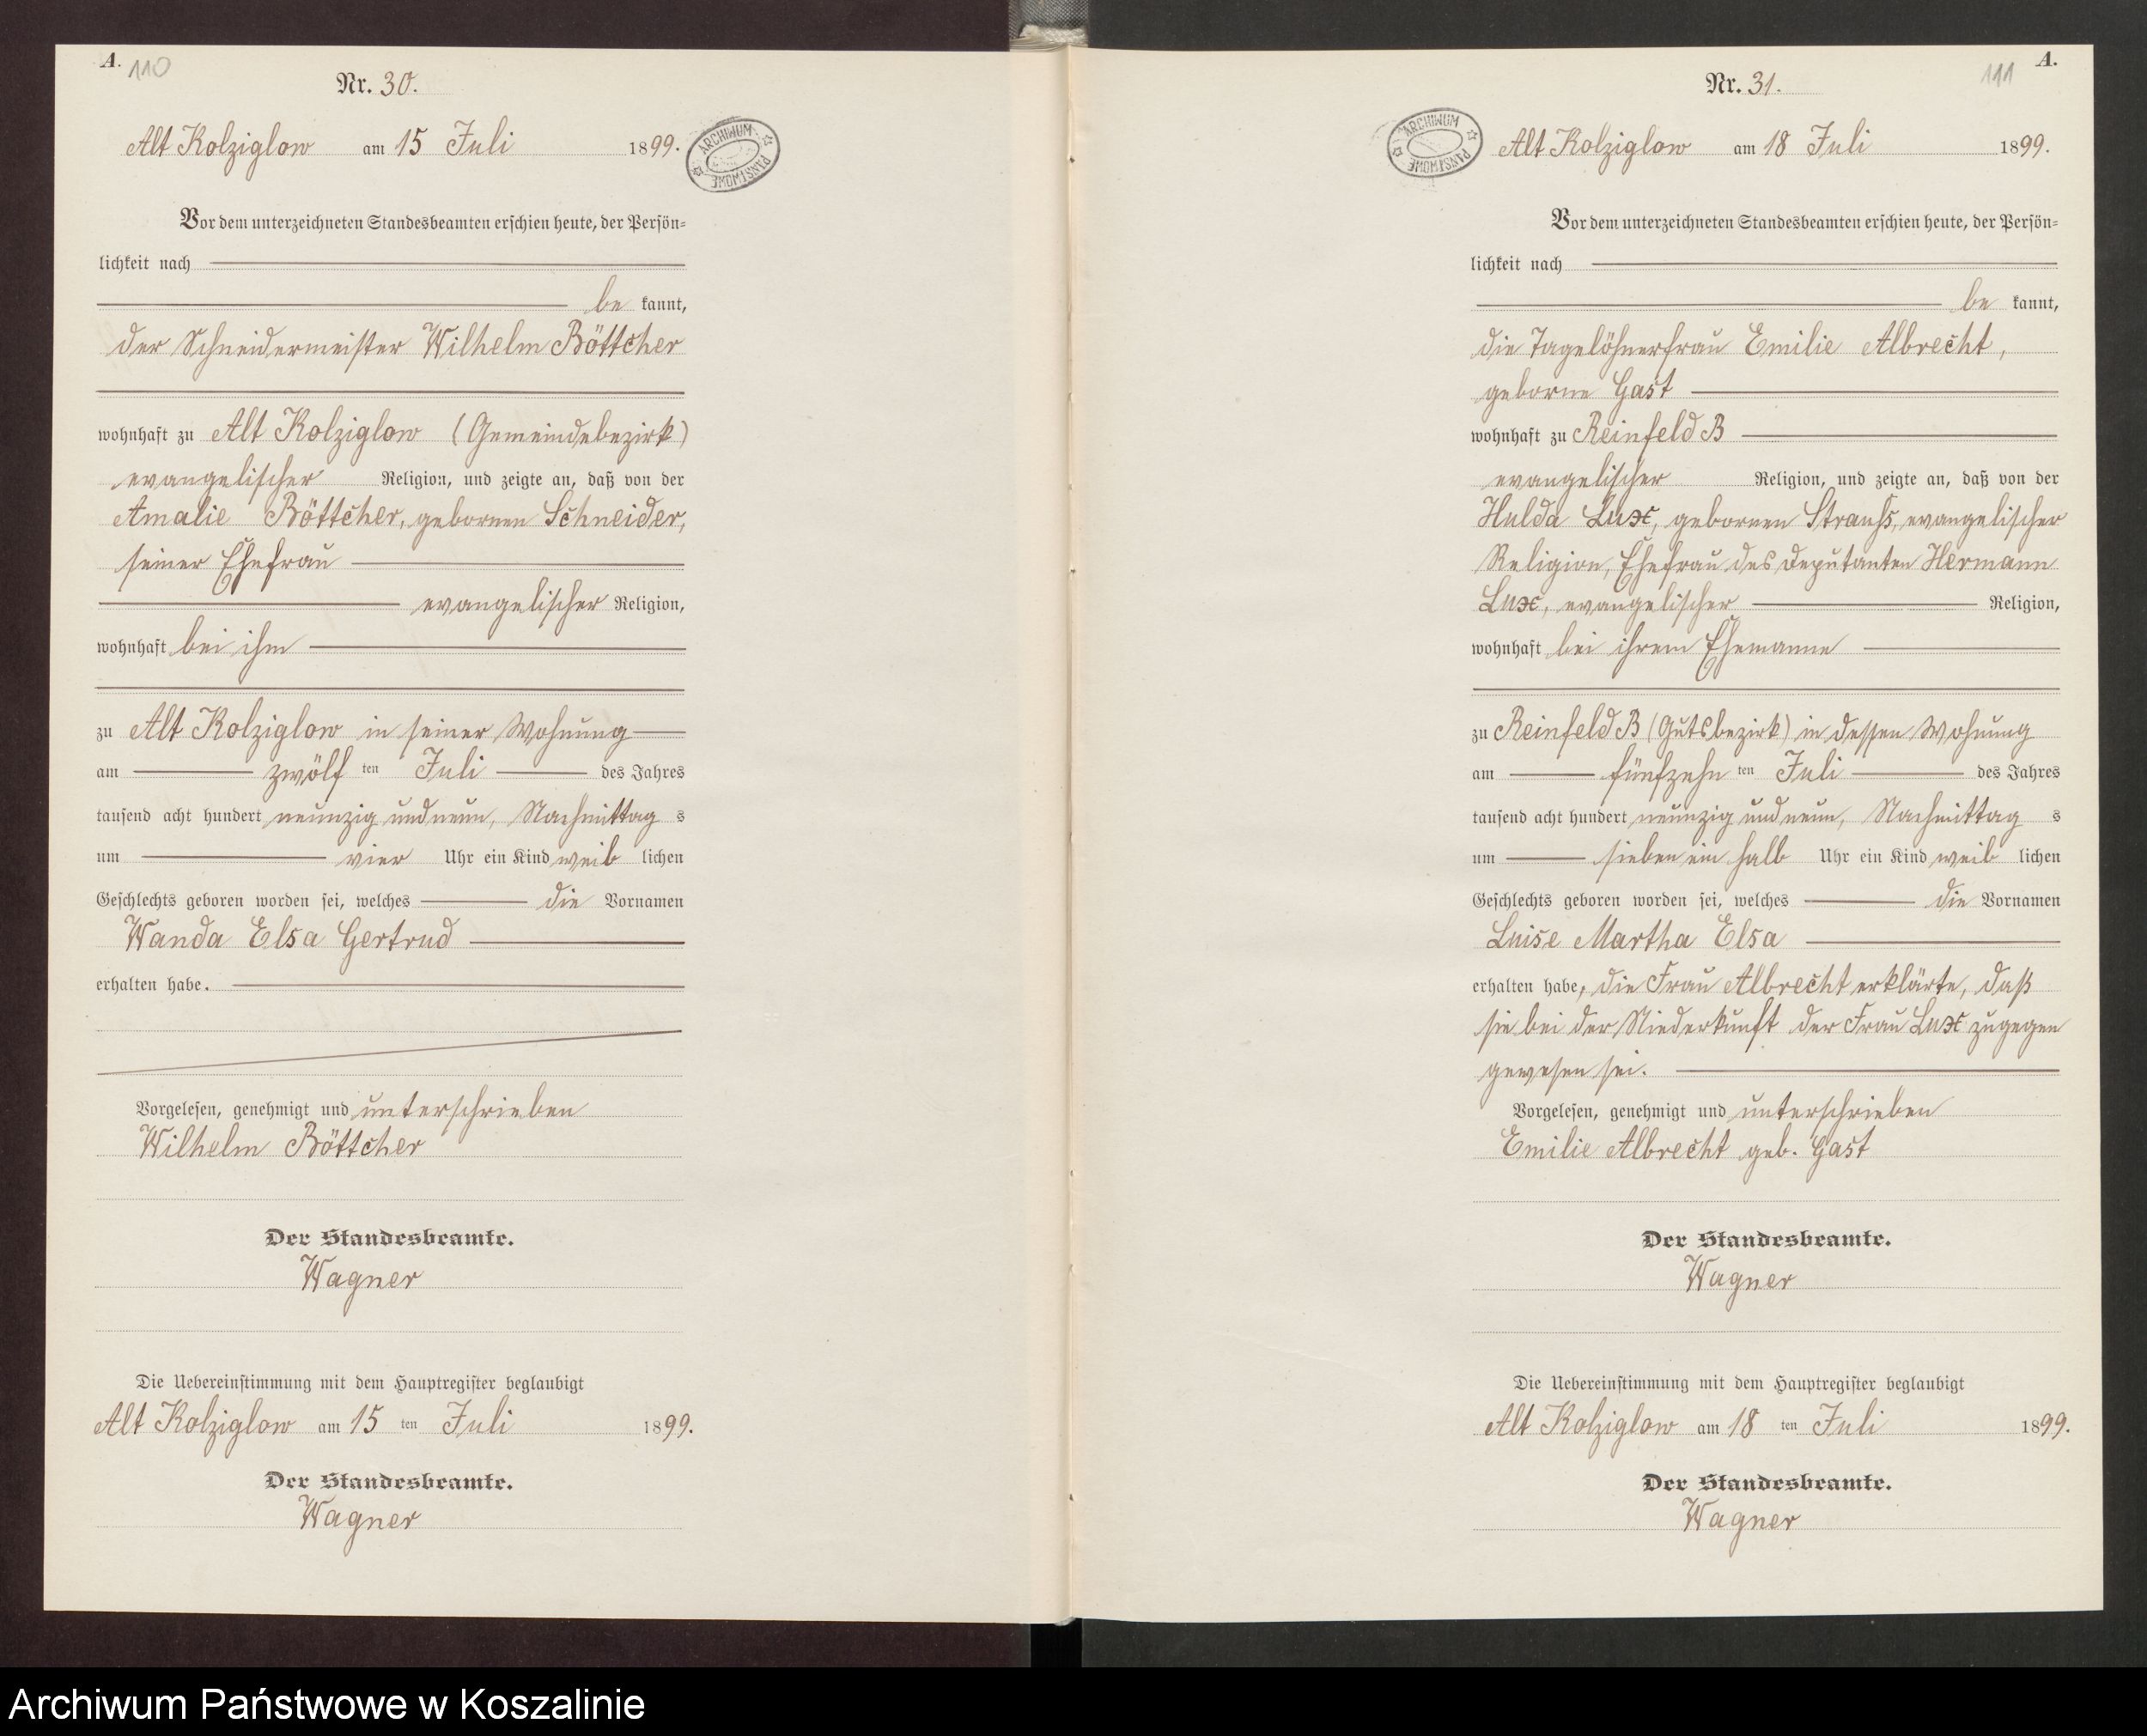 A. 110
Nr. 30.
Alt Kolziglow am 15 Juli 1899.
ARCHIWUM PAŃSTWOWE
Vor dem unterzeichneten Standesbeamten erschien heute, der Persön-
lichkeit nach
be kannt,
der Schneidermeister Wilhelm Böttcher
wohnhaft zu Alt Kolziglow (Gemeindebezirk)
evangelischer Religion, und zeigte an, daß von der
Amalie Böttcher, gebornen Schneider,
seiner Ehefrau
evangelischer Religion,
wohnhaft bei ihm
zu Alt Kolziglow in seiner Wohnung
am zwölf ten Juli des Jahres
tausend acht hundert neunzig und neun, Nachmittag s
um vier Uhr ein Kind weib lichen
Geschlechts geboren worden sei, welches die Vornamen
Wanda Elsa Gertrud
erhalten habe.
Vorgelesen, genehmigt und unterschrieben
Wilhelm Böttcher
Der Standesbeamte.
Wagner
Die Uebereinstimmung mit dem Hauptregister beglaubigt
Alt Kolziglow am 15 ten Juli 1899.
Der Standesbeamte.
Wagner
111 A.
Nr. 31.
ARCHIWUM PAŃSTWOWE
Alt Kolziglow am 18 Juli 1899.
Vor dem unterzeichneten Standesbeamten erschien heute, der Persön-
lichkeit nach
be kannt,
die Tagelöhnerfrau Emilie Albrecht,
geborne Gast
wohnhaft zu Reinfeld B
evangelischer Religion, und zeigte an, daß von der
Hulda Lux, gebornen Strauß, evangelischer
Religion, Ehefrau des Deputanten Hermann
Lux, evangelischer Religion,
wohnhaft bei ihrem Ehemanne
zu Reinfeld B (Gutsbezirk) in dessen Wohnung
am fünfzehn ten Juli des Jahres
tausend acht hundert neunzig und neun, Nachmittag s
um sieben ein halb Uhr ein Kind weib lichen
Geschlechts geboren worden sei, welches die Vornamen
Luise Martha Elsa
erhalten habe, die Frau Albrecht erklärte, daß
sie bei der Niederkunft der Frau Lux zugegen
gewesen sei.
Vorgelesen, genehmigt und unterschrieben
Emilie Albrecht geb. Gast
Der Standesbeamte.
Wagner
Die Uebereinstimmung mit dem Hauptregister beglaubigt
Alt Kolziglow am 18 ten Juli 1899.
Der Standesbeamte.
Wagner
Archiwum Państwowe w Koszalinie